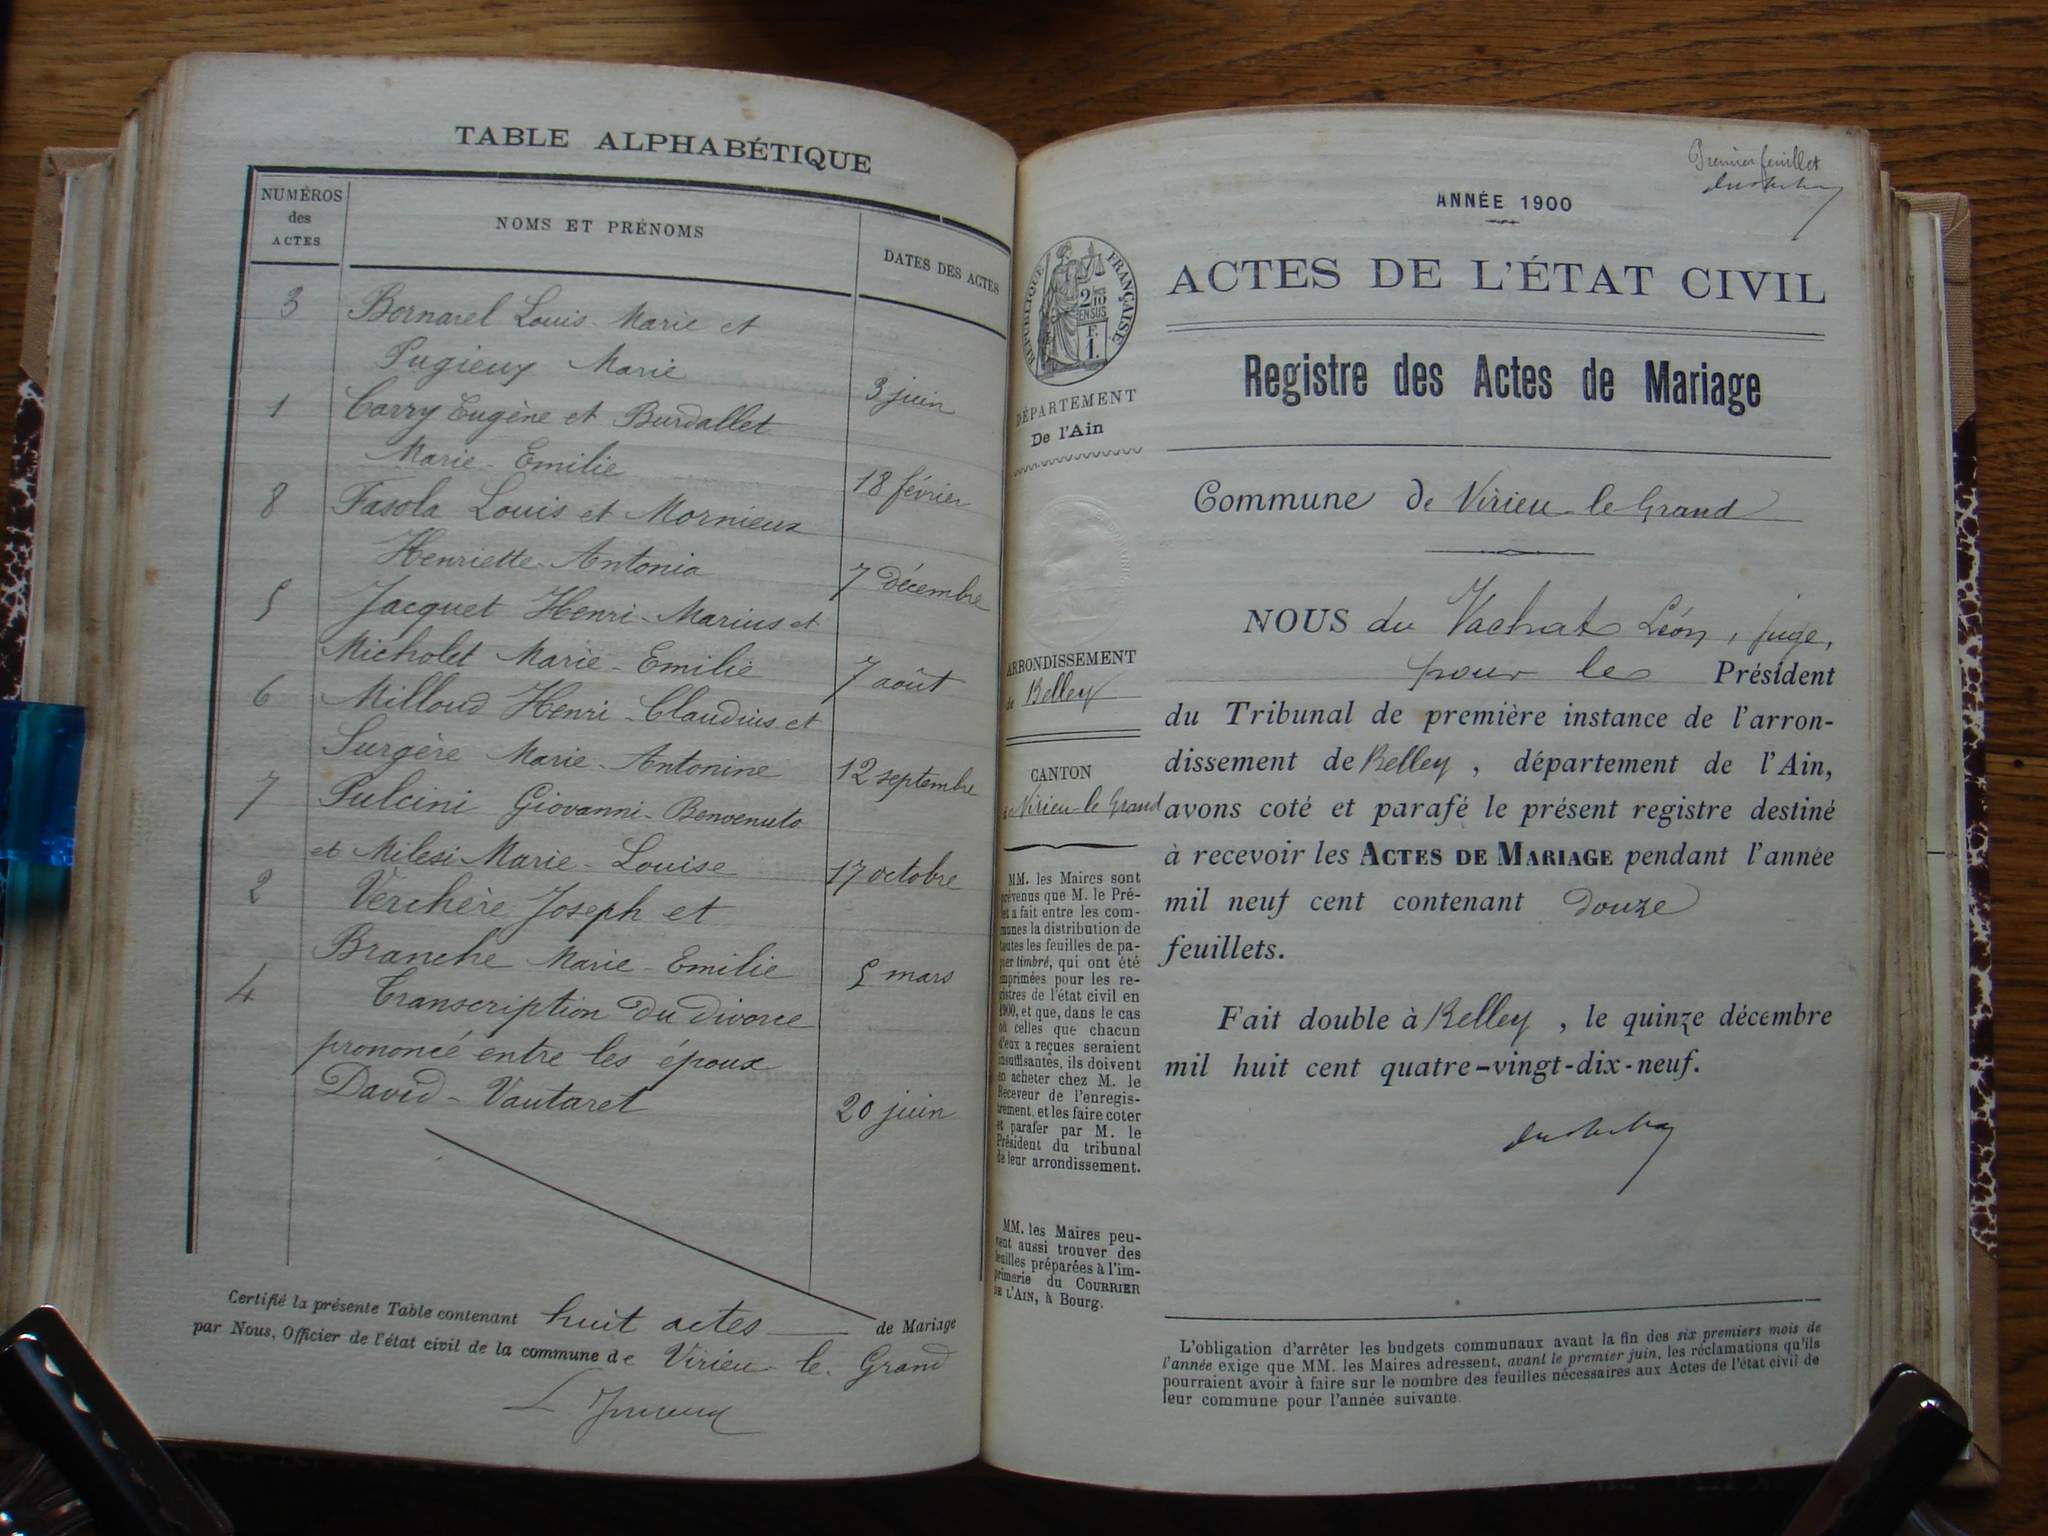 TABLE ALPHABÉTIQUE
NUMÉROS
des
ACTES
NOMS ET PRÉNOMS
DATES DES ACTES
3 Bornarel Louis-Marie et
Pugieux Marie 3 juin
1 Carry Eugène et Burdallet
Marie-Emilie 18 février
8 Fasola Louis et Mornieux
Henriette-Antonia 7 décembre
5 Jacquet Henri-Marius et
Micholet Marie-Emilie 7 août
6 Milloud Henri-Claudius et
Surgère Marie-Antonine 12 septembre
7 Pulcini Giovanni-Benvenuto
et Milesi Marie-Louise 17 octobre
2 Verchère Joseph et
Branche Marie-Emilie 5 mars
4 Transcription du divorce
prononcé entre les époux
David-Vautaret 20 juin
Certifié la présente Table contenant huit actes de Mariage
par Nous, Officier de l'état civil de la commune de Virieu-le-Grand
Premier feuillet
ANNÉE 1900
ACTES DE L'ÉTAT CIVIL
Registre des Actes de Mariage
Commune de Virieu-le-Grand
NOUS du Vachat Léon, juge,
pour le Président
du Tribunal de première instance de l'arron-
dissement de Belley, département de l'Ain,
avons coté et parafé le présent registre destiné
à recevoir les ACTES DE MARIAGE pendant l'année
mil neuf cent contenant douze
feuillets.
Fait double à Belley, le quinze décembre
mil huit cent quatre-vingt-dix-neuf.
RÉPUBLIQUE FRANÇAISE
2/10
EN SUS
F.
1.
DÉPARTEMENT
De l'Ain
ARRONDISSEMENT
de Belley
CANTON
de Virieu-le-Grand
MM. les Maires sont
prévenus que M. le Pré-
fet a fait entre les com-
munes la distribution de
toutes les feuilles de pa-
pier timbré, qui ont été
imprimées pour les re-
gistres de l'état civil en
1900, et que, dans le cas
où celles que chacun
d'eux a reçues seraient
insuffisantes, ils doivent
en acheter chez M. le
Receveur de l'enregis-
trement, et les faire coter
et parafer par M. le
Président du tribunal
de leur arrondissement.
MM. les Maires peu-
vent aussi trouver des
feuilles préparées à l'im-
primerie du COURRIER
DE L'AIN, à Bourg.
L'obligation d'arrêter les budgets communaux avant la fin des six premiers mois de
l'année exige que MM. les Maires adressent, avant le premier juin, les réclamations qu'ils
pourraient avoir à faire sur le nombre des feuilles nécessaires aux Actes de l'état civil de
leur commune pour l'année suivante.